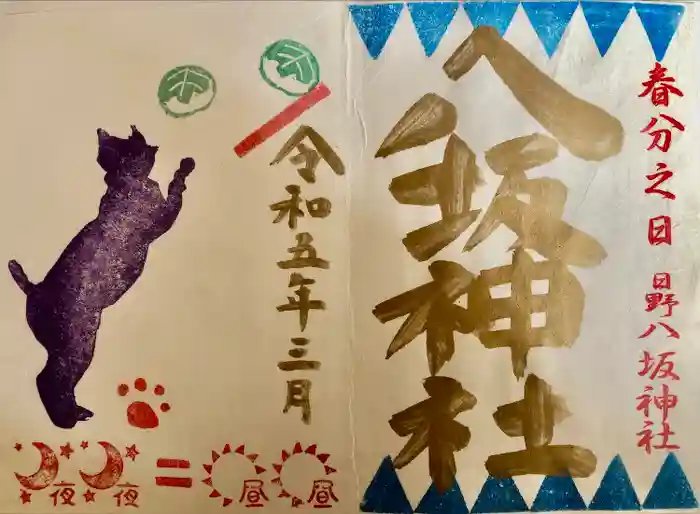 春分之日
日野八坂神社
八坂神社
令和五年三月
夜 夜 = 昼 昼